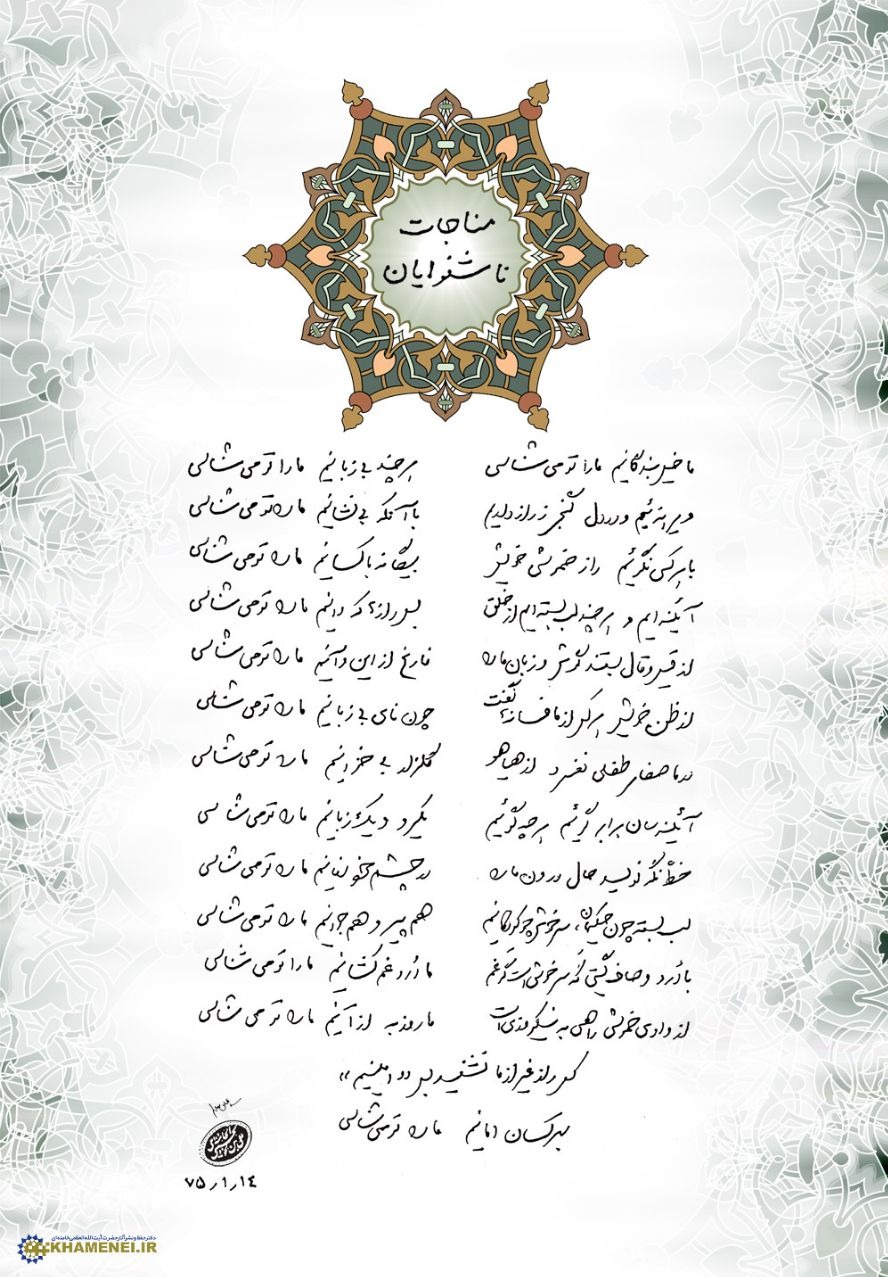 مناجات
ناشنوایان
ما خیل بندگانیم ما را تو می‌شناسی هر چند بی‌زبانیم ما را تو می‌شناسی
ویرانه‌ئیم و در دل گنجی ز راز داریم با آنکه بی‌نشانیم ما را تو می‌شناسی
با هر کسی نگوئیم راز خموشی خویش بیگانه با کسانیم ما را تو می‌شناسی
آئینه‌ایم و هر چند لب بسته‌ایم از خلق بس رازها که دانیم ما را تو می‌شناسی
از قیل و قال بستند گوش و زبان ما را فارغ از این و آنیم ما را تو می‌شناسی
از ظن خویش هر کس از ما فسانه‌ها گفت چون نای بی‌زبانیم ما را تو می‌شناسی
در ما صفای طفلی نفسرد از هیاهو گلزار بی‌خزانیم ما را تو می‌شناسی
آئینه‌سان برابر گوئیم هر چه گوئیم یکرو و یک زبانیم ما را تو می‌شناسی
خطّ نگه نویسد حال درون ما را در چشم خود نهانیم ما را تو می‌شناسی
لب بسته چون حکیمان، سر خوش چو کودکانیم هم پیر و هم جوانیم ما را تو می‌شناسی
با دُرد و صاف گیتی گه سرخوش است گه غم ما دُرد غم کشانیم ما را تو می‌شناسی
از وادی خموشی راهی به نیکروزی است ما روزبه از آنیم ما را تو می‌شناسی
کس راز غیر از ما نشنید بس «امینیم»
بهر کسان امانیم ما را تو می‌شناسی
۷۵٫۱٫۱۴
دفتر حفظ و نشر آثار حضرت آیت‌الله العظمی خامنه‌ای
KHAMENEI.IR